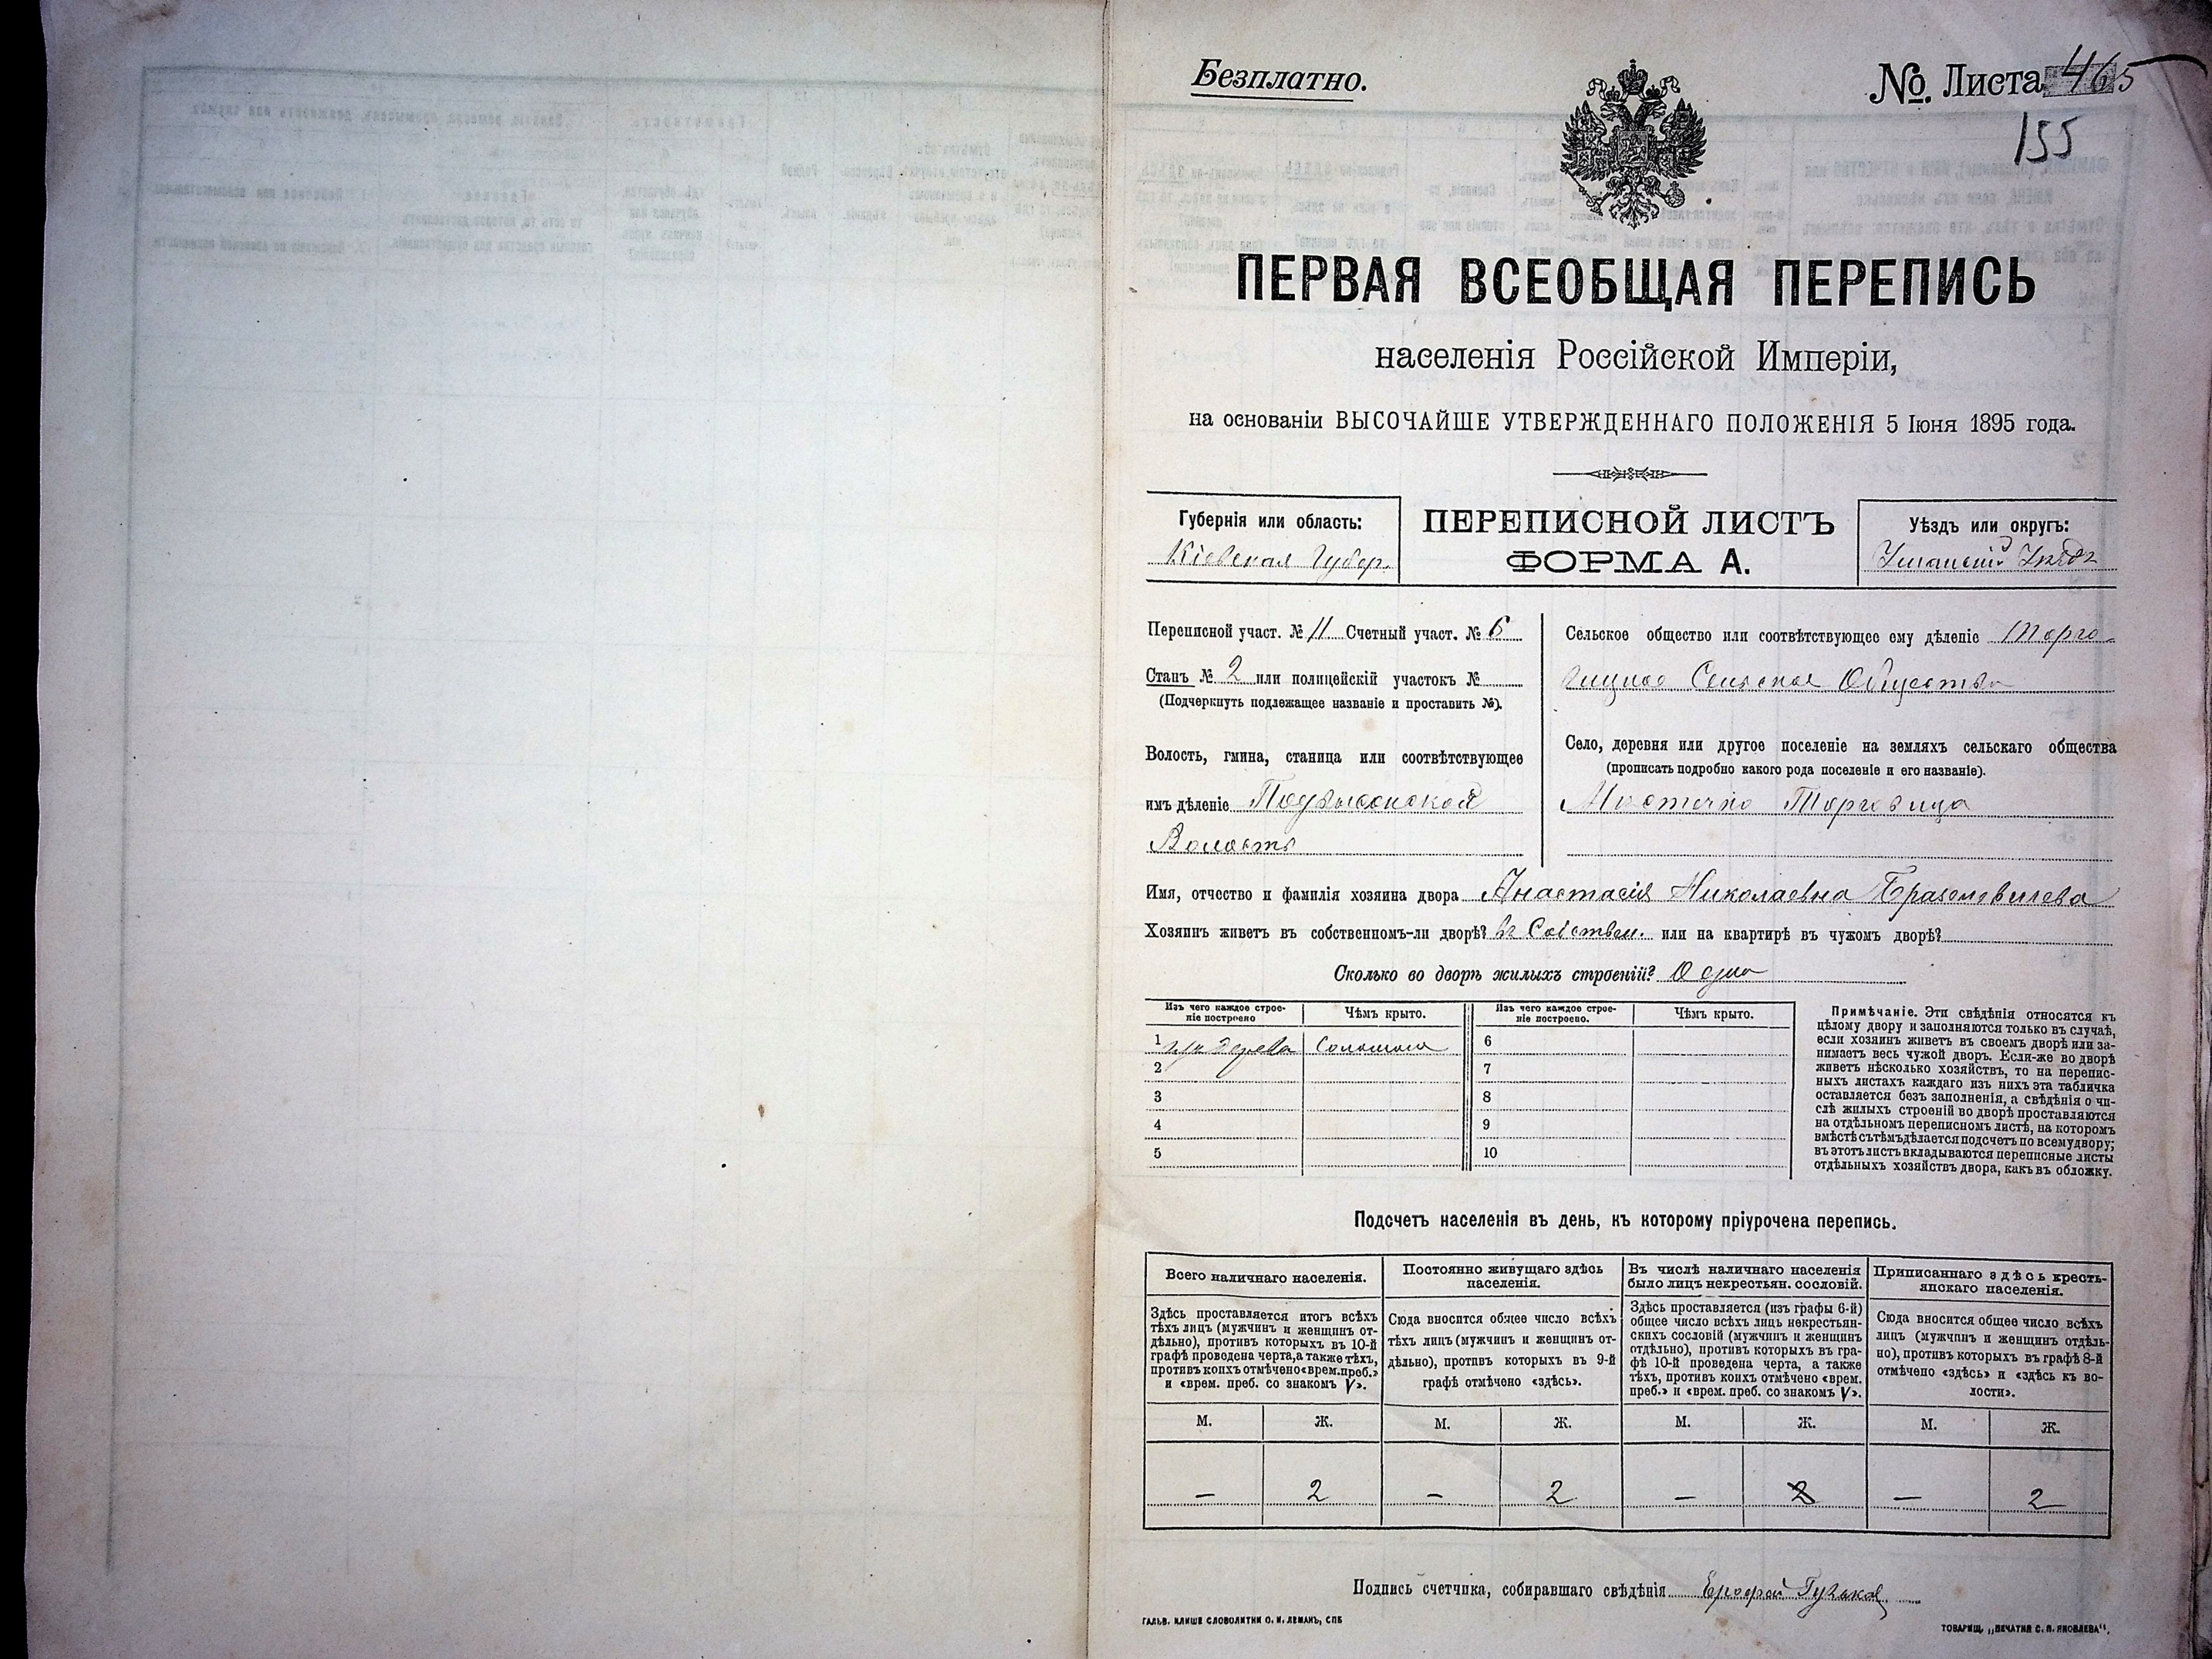 Безплатно.
№ Листа 465
155
ПЕРВАЯ ВСЕОБЩАЯ ПЕРЕПИСЬ
населенія Россійской Имперіи,
на основаніи ВЫСОЧАЙШЕ УТВЕРЖДЕННАГО ПОЛОЖЕНІЯ 5 Іюня 1895 года.
Губернія или область:
Кіевская Губер.
ПЕРЕПИСНОЙ ЛИСТЪ
ФОРМА А.
Уѣздъ или округъ:
Уманскій Уѣздъ
Переписной участ. № 11 Счетный участ. № 6
Станъ № 2 или полицейскій участокъ №
(Подчеркнуть подлежащее названіе и проставить №).
Волость, гмина, станица или соотвѣтствующее
имъ дѣленіе Подвысокская
Волость
Сельское общество или соотвѣтствующее ему дѣленіе Торго-
Сельское Общество
Село, деревня или другое поселеніе на земляхъ сельскаго общества
(прописать подробно какого рода поселеніе и его названіе).
Мѣстечко Торговица
Имя, отчество и фамилія хозяина двора Анастасія Николаевна
Хозяинъ живетъ въ собственномъ-ли дворѣ? въ Собствен. или на квартирѣ въ чужомъ дворѣ?
Сколько во дворѣ жилыхъ строеній? Одна
Изъ чего каждое строе-
ніе построено
Чѣмъ крыто.
Изъ чего каждое строе-
ніе построено.
Чѣмъ крыто.
1 изъ дерева Соломою
2
3
4
5
6
7
8
9
10
Примѣчаніе. Эти свѣдѣнія относятся къ
цѣлому двору и заполняются только въ случаѣ,
если хозяинъ живетъ въ своемъ дворѣ или за-
нимаетъ весь чужой дворъ. Если-же во дворѣ
живетъ нѣсколько хозяйствъ, то на перепис-
ныхъ листахъ каждаго изъ нихъ эта табличка
оставляется безъ заполненія, а свѣдѣнія о чи-
слѣ жилыхъ строеній во дворѣ проставляются
на отдѣльномъ переписномъ листѣ, на которомъ
вмѣстѣ съ тѣмъ дѣлается подсчетъ по всему двору;
въ этотъ листъ вкладываются переписные листы
отдѣльныхъ хозяйствъ двора, какъ въ обложку.
Подсчетъ населенія въ день, къ которому пріурочена перепись.
Всего наличнаго населенія.
Здѣсь проставляется итогъ всѣхъ
тѣхъ лицъ (мужчинъ и женщинъ от-
дѣльно), противъ которыхъ въ 10-й
графѣ проведена черта, а также тѣхъ,
противъ коихъ отмѣчено «врем. преб.»
и «врем. преб. со знакомъ V».
Постоянно живущаго здѣсь
населенія.
Сюда вносится общее число всѣхъ
тѣхъ лицъ (мужчинъ и женщинъ от-
дѣльно), противъ которыхъ въ 9-й
графѣ отмѣчено «здѣсь».
Въ числѣ наличнаго населенія
было лицъ некрестьян. сословій.
Здѣсь проставляется (изъ графы 6-й)
общее число всѣхъ лицъ некрестьян-
скихъ сословій (мужчинъ и женщинъ
отдѣльно), противъ которыхъ въ гра-
фѣ 10-й проведена черта, а также
тѣхъ, противъ коихъ отмѣчено «врем.
преб.» и «врем. преб. со знакомъ V».
Приписаннаго здѣсь кресть-
янскаго населенія.
Сюда вносится общее число всѣхъ
лицъ (мужчинъ и женщинъ отдѣль-
но), противъ которыхъ въ графѣ 8-й
отмѣчено «здѣсь» и «здѣсь къ во-
лости».
М. Ж. М. Ж. М. Ж. М. Ж.
— 2 — 2 — 2 — 2
Подпись счетчика, собиравшаго свѣдѣнія Ерофей
ГАЛЬВ. КЛИШЕ СЛОВОЛИТНИ О. И. ЛЕМАНЪ, СПБ
ТОВАРИЩ. „ПЕЧАТНЯ С. П. ЯКОВЛЕВА“.